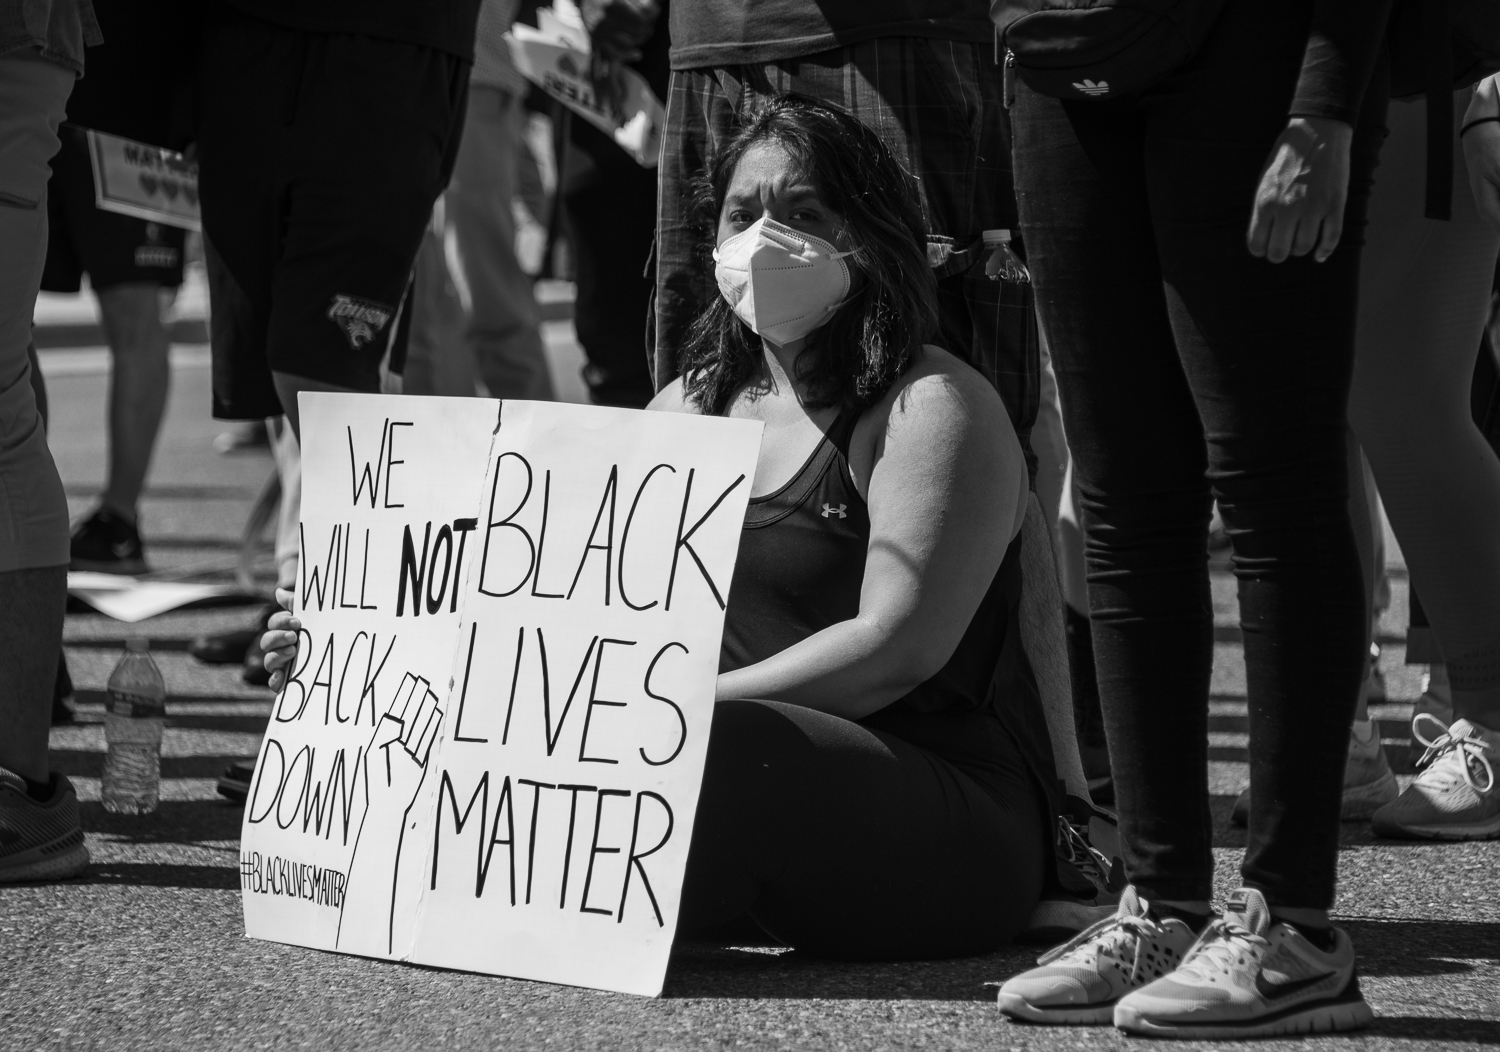 WE
WILL NOT
BACK
DOWN
#BLACKLIVESMATTER
BLACK
LIVES
MATTER
TOWSON